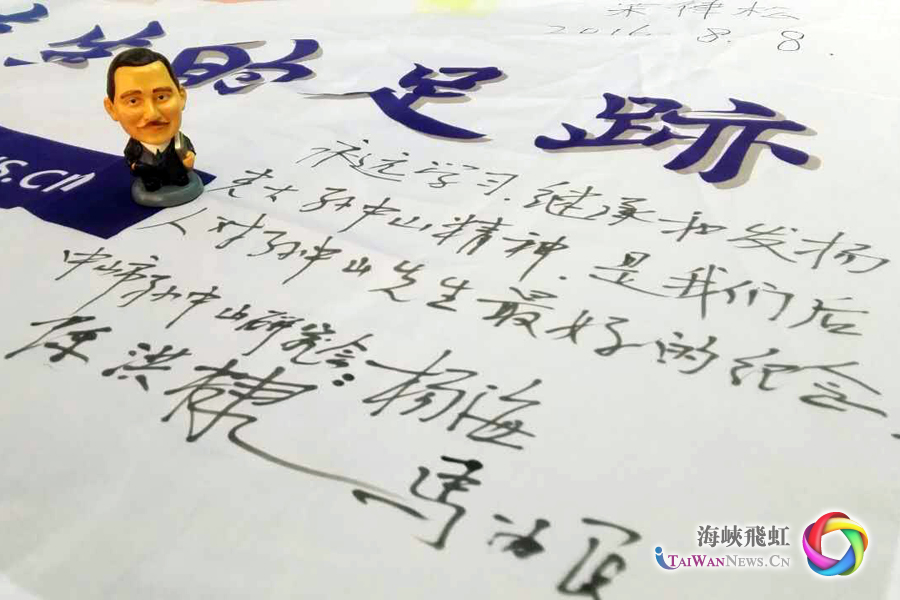 伟松
2016.8.8.
的足跡
s.cn
永远学习、继承和发扬
光大孙中山精神、是我们后
人对孙中山先生最好的纪念。
中山市孙中山研究会: 杨海
陈洪
海峽飛虹
iTaiWanNews.Cn